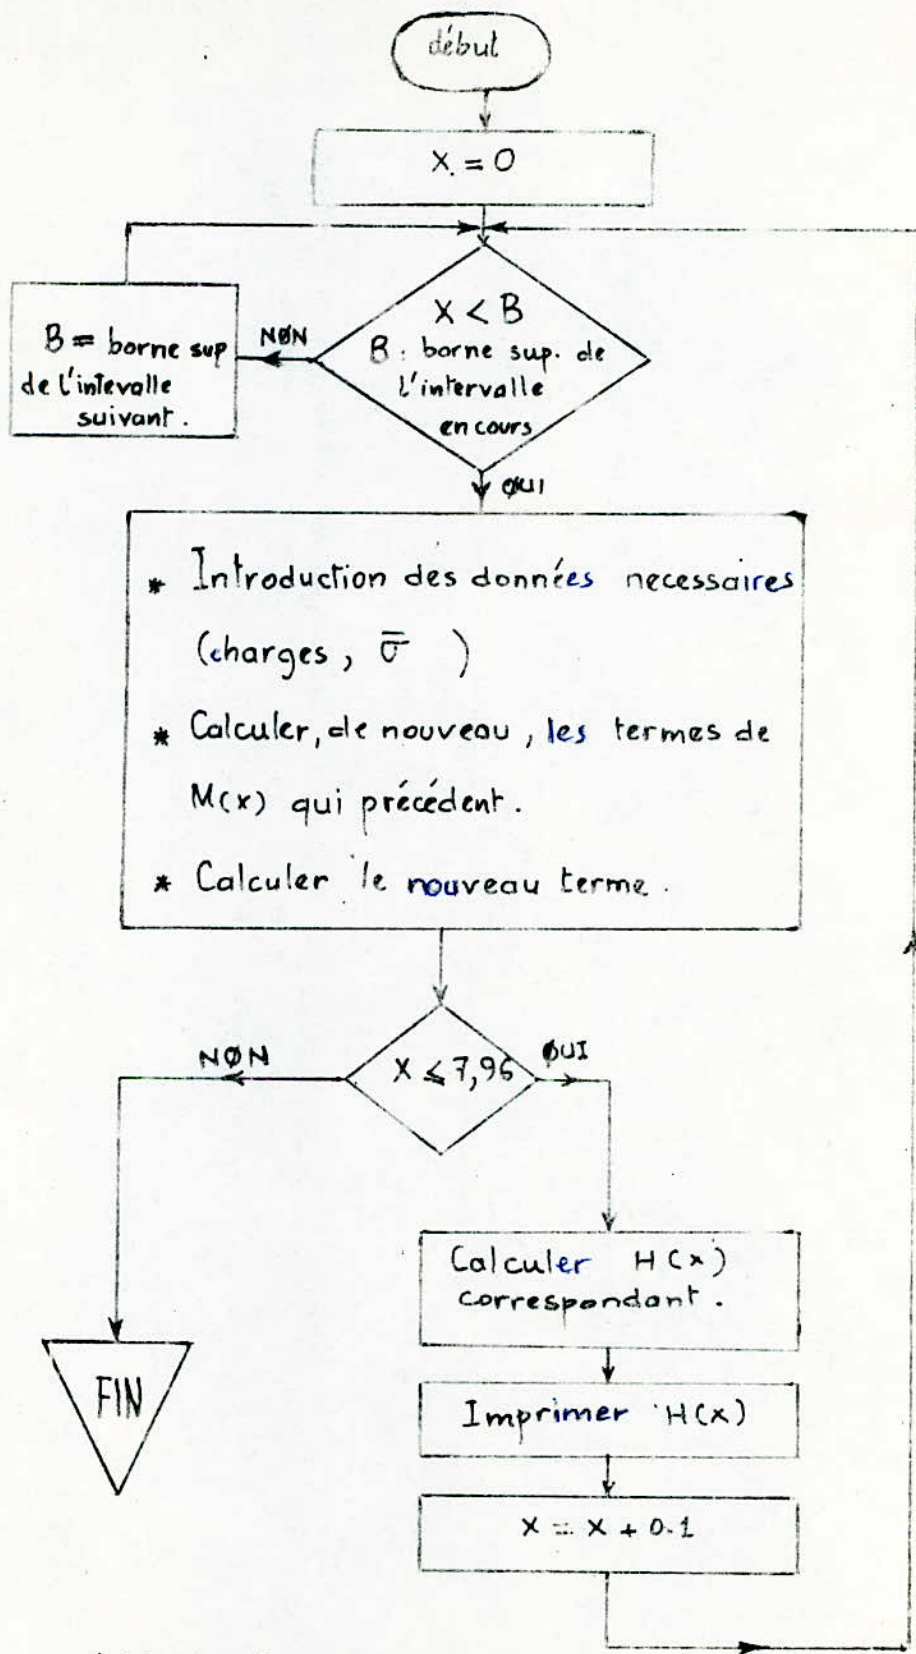 début
X = 0
X < B
B : borne sup. de
l'intervalle
en cours
NØN
B = borne sup
de l'intevalle
suivant.
ØUI
* Introduction des données necessaires
(charges, σ̅ )
* Calculer, de nouveau, les termes de
M(x) qui précédent.
* Calculer le nouveau terme.
X ≤ 7,96
NØN
ØUI
Calculer H(x)
correspondant.
Imprimer H(x)
X = X + 0.1
FIN